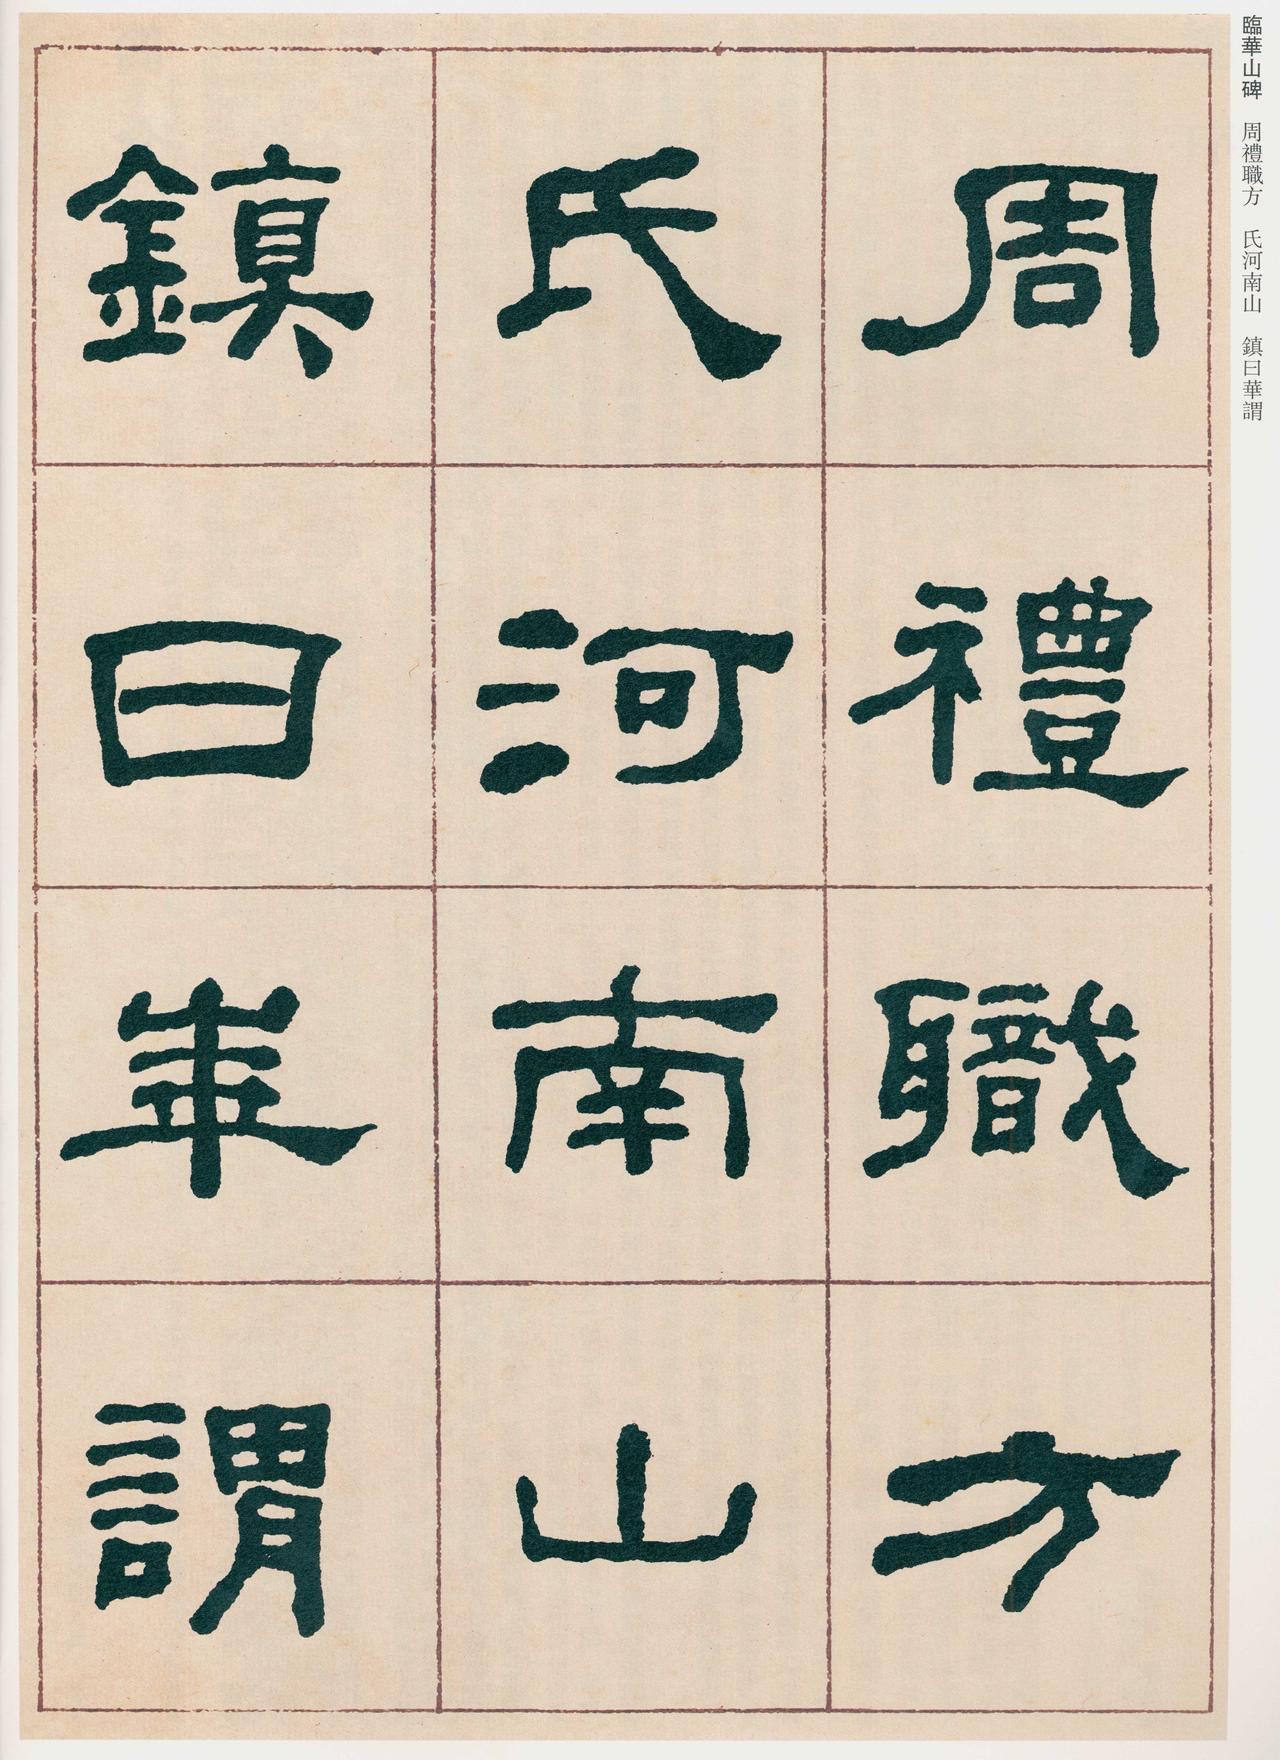 臨華山碑　周禮職方　氏河南山　鎮曰華謂
周禮職方
氏河南山
鎮曰華謂